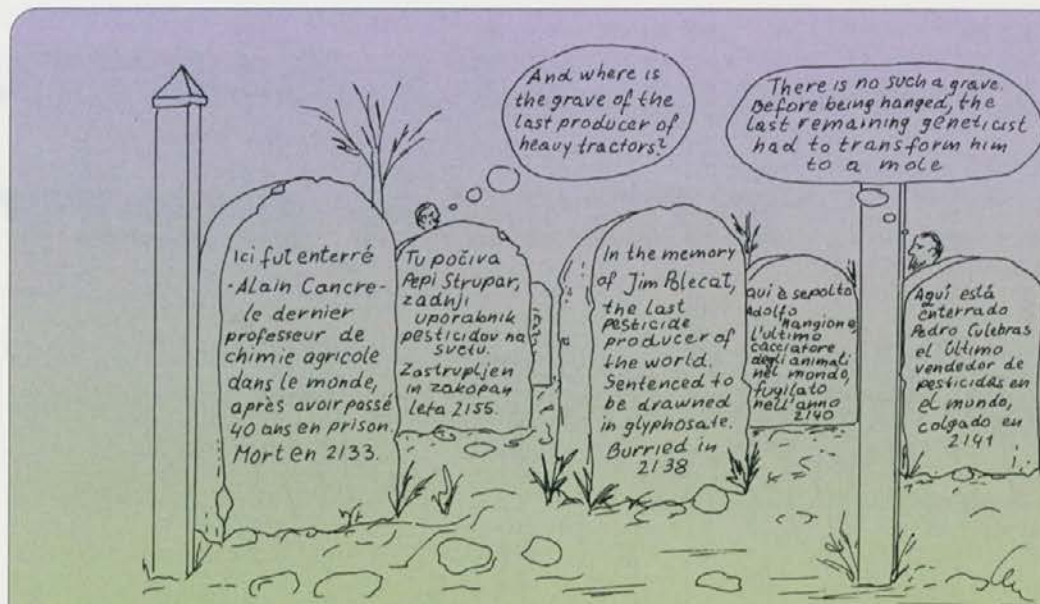 And where is
the grave of the
last producer of
heavy tractors?
There is no such a grave.
Before being hanged, the
last remaining geneticist
had to transform him
to a mole
Ici fut enterré
-Alain Cancre-
le dernier
professeur de
chimie agricole
dans le monde,
après avoir passé
40 ans en prison.
Mort en 2133.
Tu počiva
Pepi Strupar,
zadnji
uporabnik
pesticidov na
svetu.
Zastrupljen
in zakopan
leta 2155.
In the memory
of Jim Polecat,
the last
pesticide
producer of
the world.
Sentenced to
be drawned
in glyphosate.
Burried in
2138
Qui è sepolto
Adolfo
Mangione,
l'ultimo
cacciatore
degli animali
nel mondo,
fugilato
nell'anno
2140
Aquí está
enterrado
Pedro Culebras
el último
vendedor de
pesticidas en
el mundo,
colgado en
2141